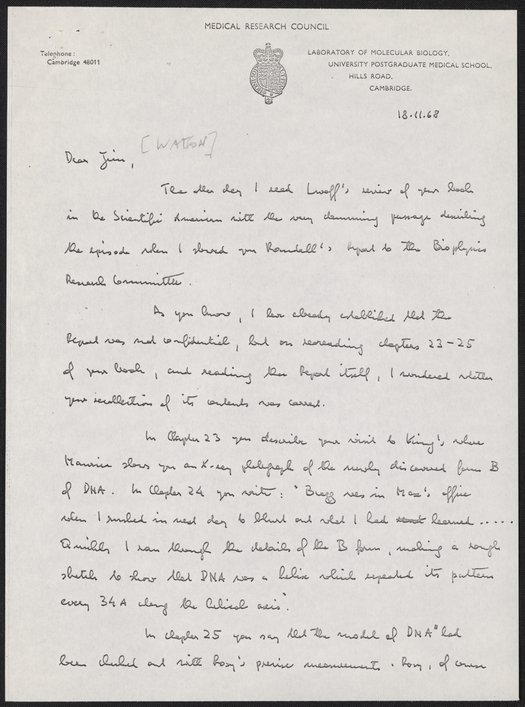 MEDICAL RESEARCH COUNCIL
Telephone:
Cambridge 48011
LABORATORY OF MOLECULAR BIOLOGY,
UNIVERSITY POSTGRADUATE MEDICAL SCHOOL,
HILLS ROAD,
CAMBRIDGE.
18.11.68
[WATSON]
Dear Jim,
The other day I read Lwoff's review of your book
in the Scientific American with the very damning passage describing
the episode when I showed you Randall's report to the Biophysics
Research Committee.
As you know, I have already established that the
Report was not confidential, but on rereading chapters 23-25
of your book, and reading the Report itself, I wondered whether
your recollection of its contents was correct.
In Chapter 23 you describe your visit to King's, where
Maurice shows you an X-ray photograph of the newly discovered form B
of DNA. In Chapter 24 you write: "Bragg was in Max's office
when I rushed in next day to blurt out what I had learned.....
Quickly I ran through the details of the B form, making a rough
sketch to show that DNA was a helix which repeated its pattern
every 34A along the helical axis".
In chapter 25 you say that the model of DNA "had
been checked out with Rosy's precise measurements. Rosy, of course